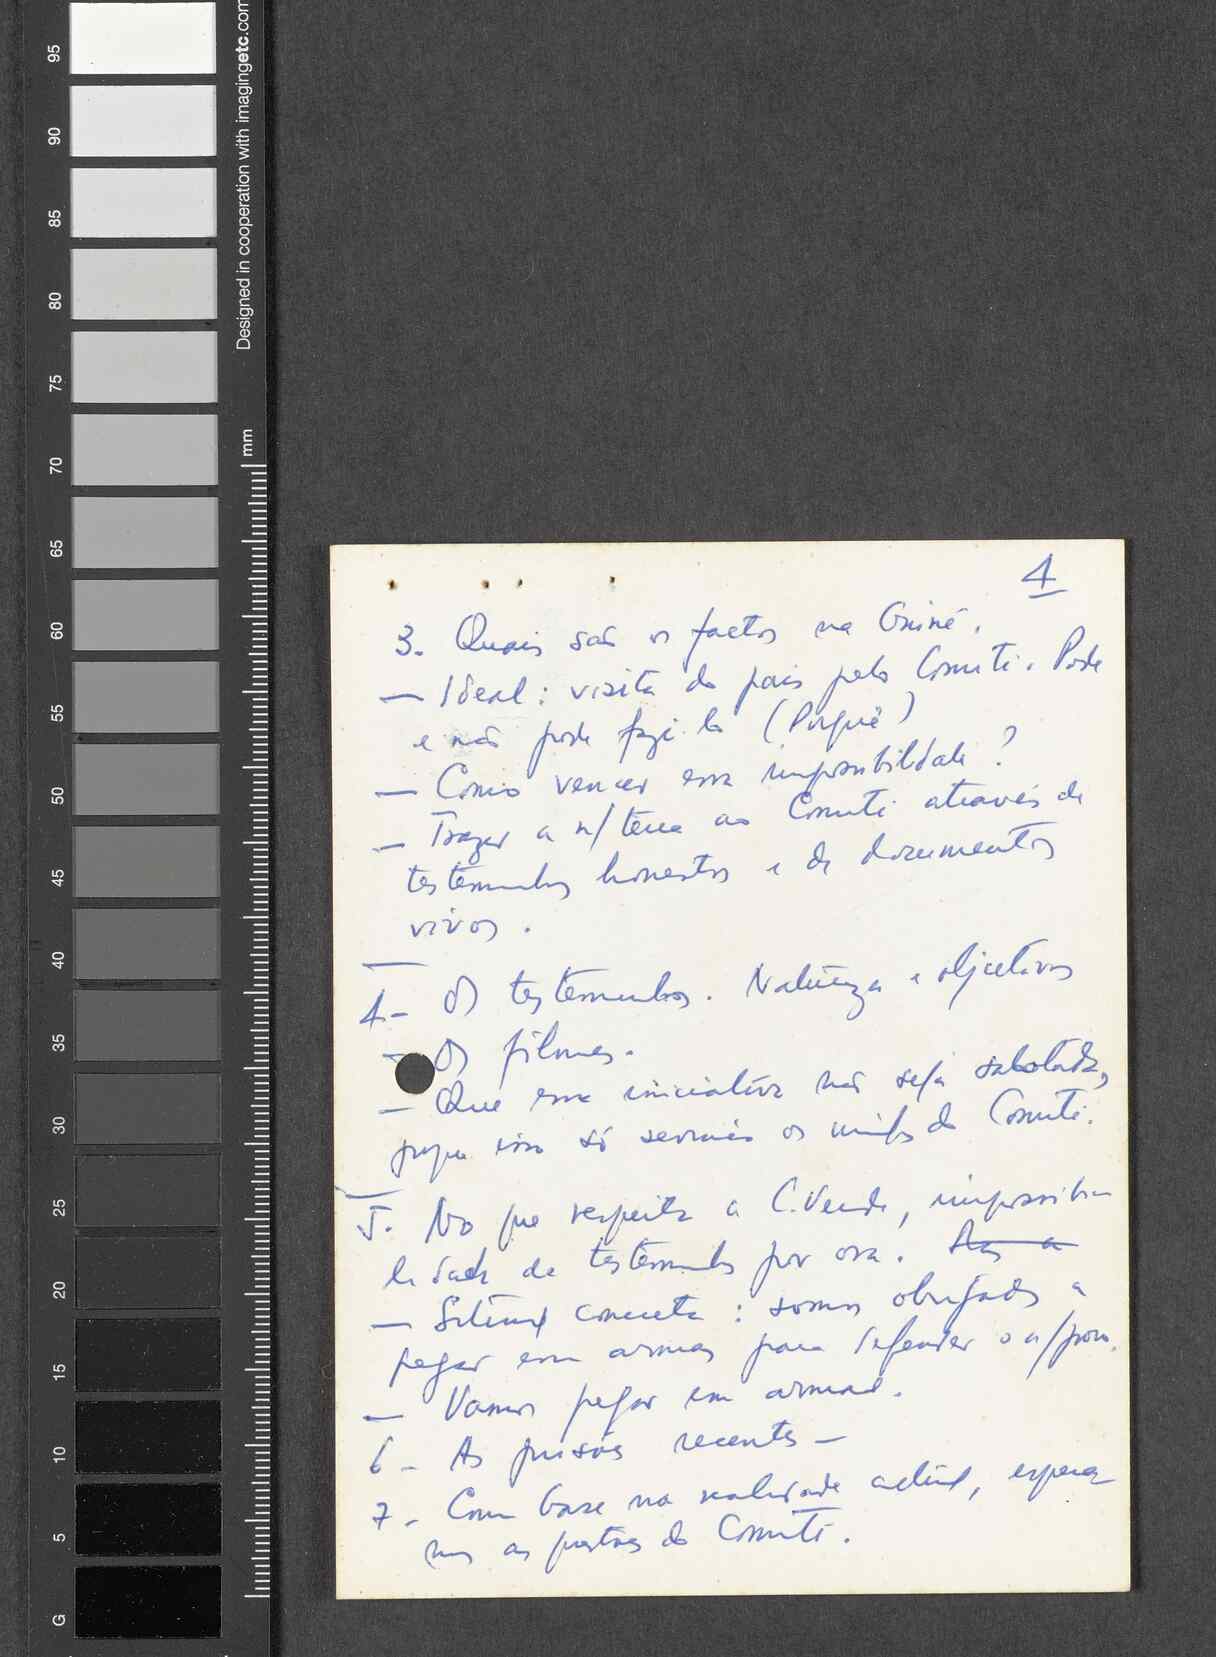 95
90
85
80
75
70
65
60
55
50
45
40
35
30
25
20
15
10
5
G
Designed in cooperation with imagingetc.com
mm
4
3. Quais são os factos na Guiné.
— Ideal: visita do país pelo Comité. Pode
e não pode fazê-lo (Porquê)
— Como vencer essa impossibilidade?
— Trazer a n/terra ao Comité através de
testemunhos honestos e de documentos
vivos.
4 - Os testemunhos. Natureza e objectivos
- Os filmes.
— Que essa iniciativa não seja sabotada,
porque isso só servirá os inimigos do Comité.
5. No que respeita a C. Verde, impossibi-
lidade de testemunhos por ora. Mas a
— Situação concreta: somos obrigados a
pegar em armas para defender o n/povo.
— Vamos pegar em armas.
6 - As prisões recentes —
7 - Com base na realidade actual, espera-
mos as do Comité.